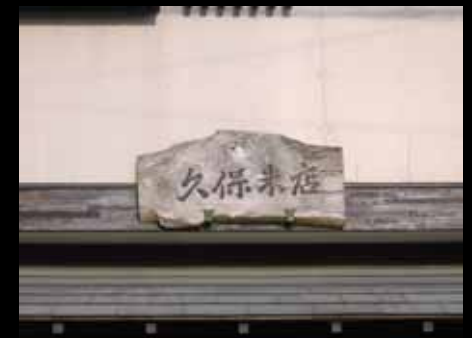 久保米店